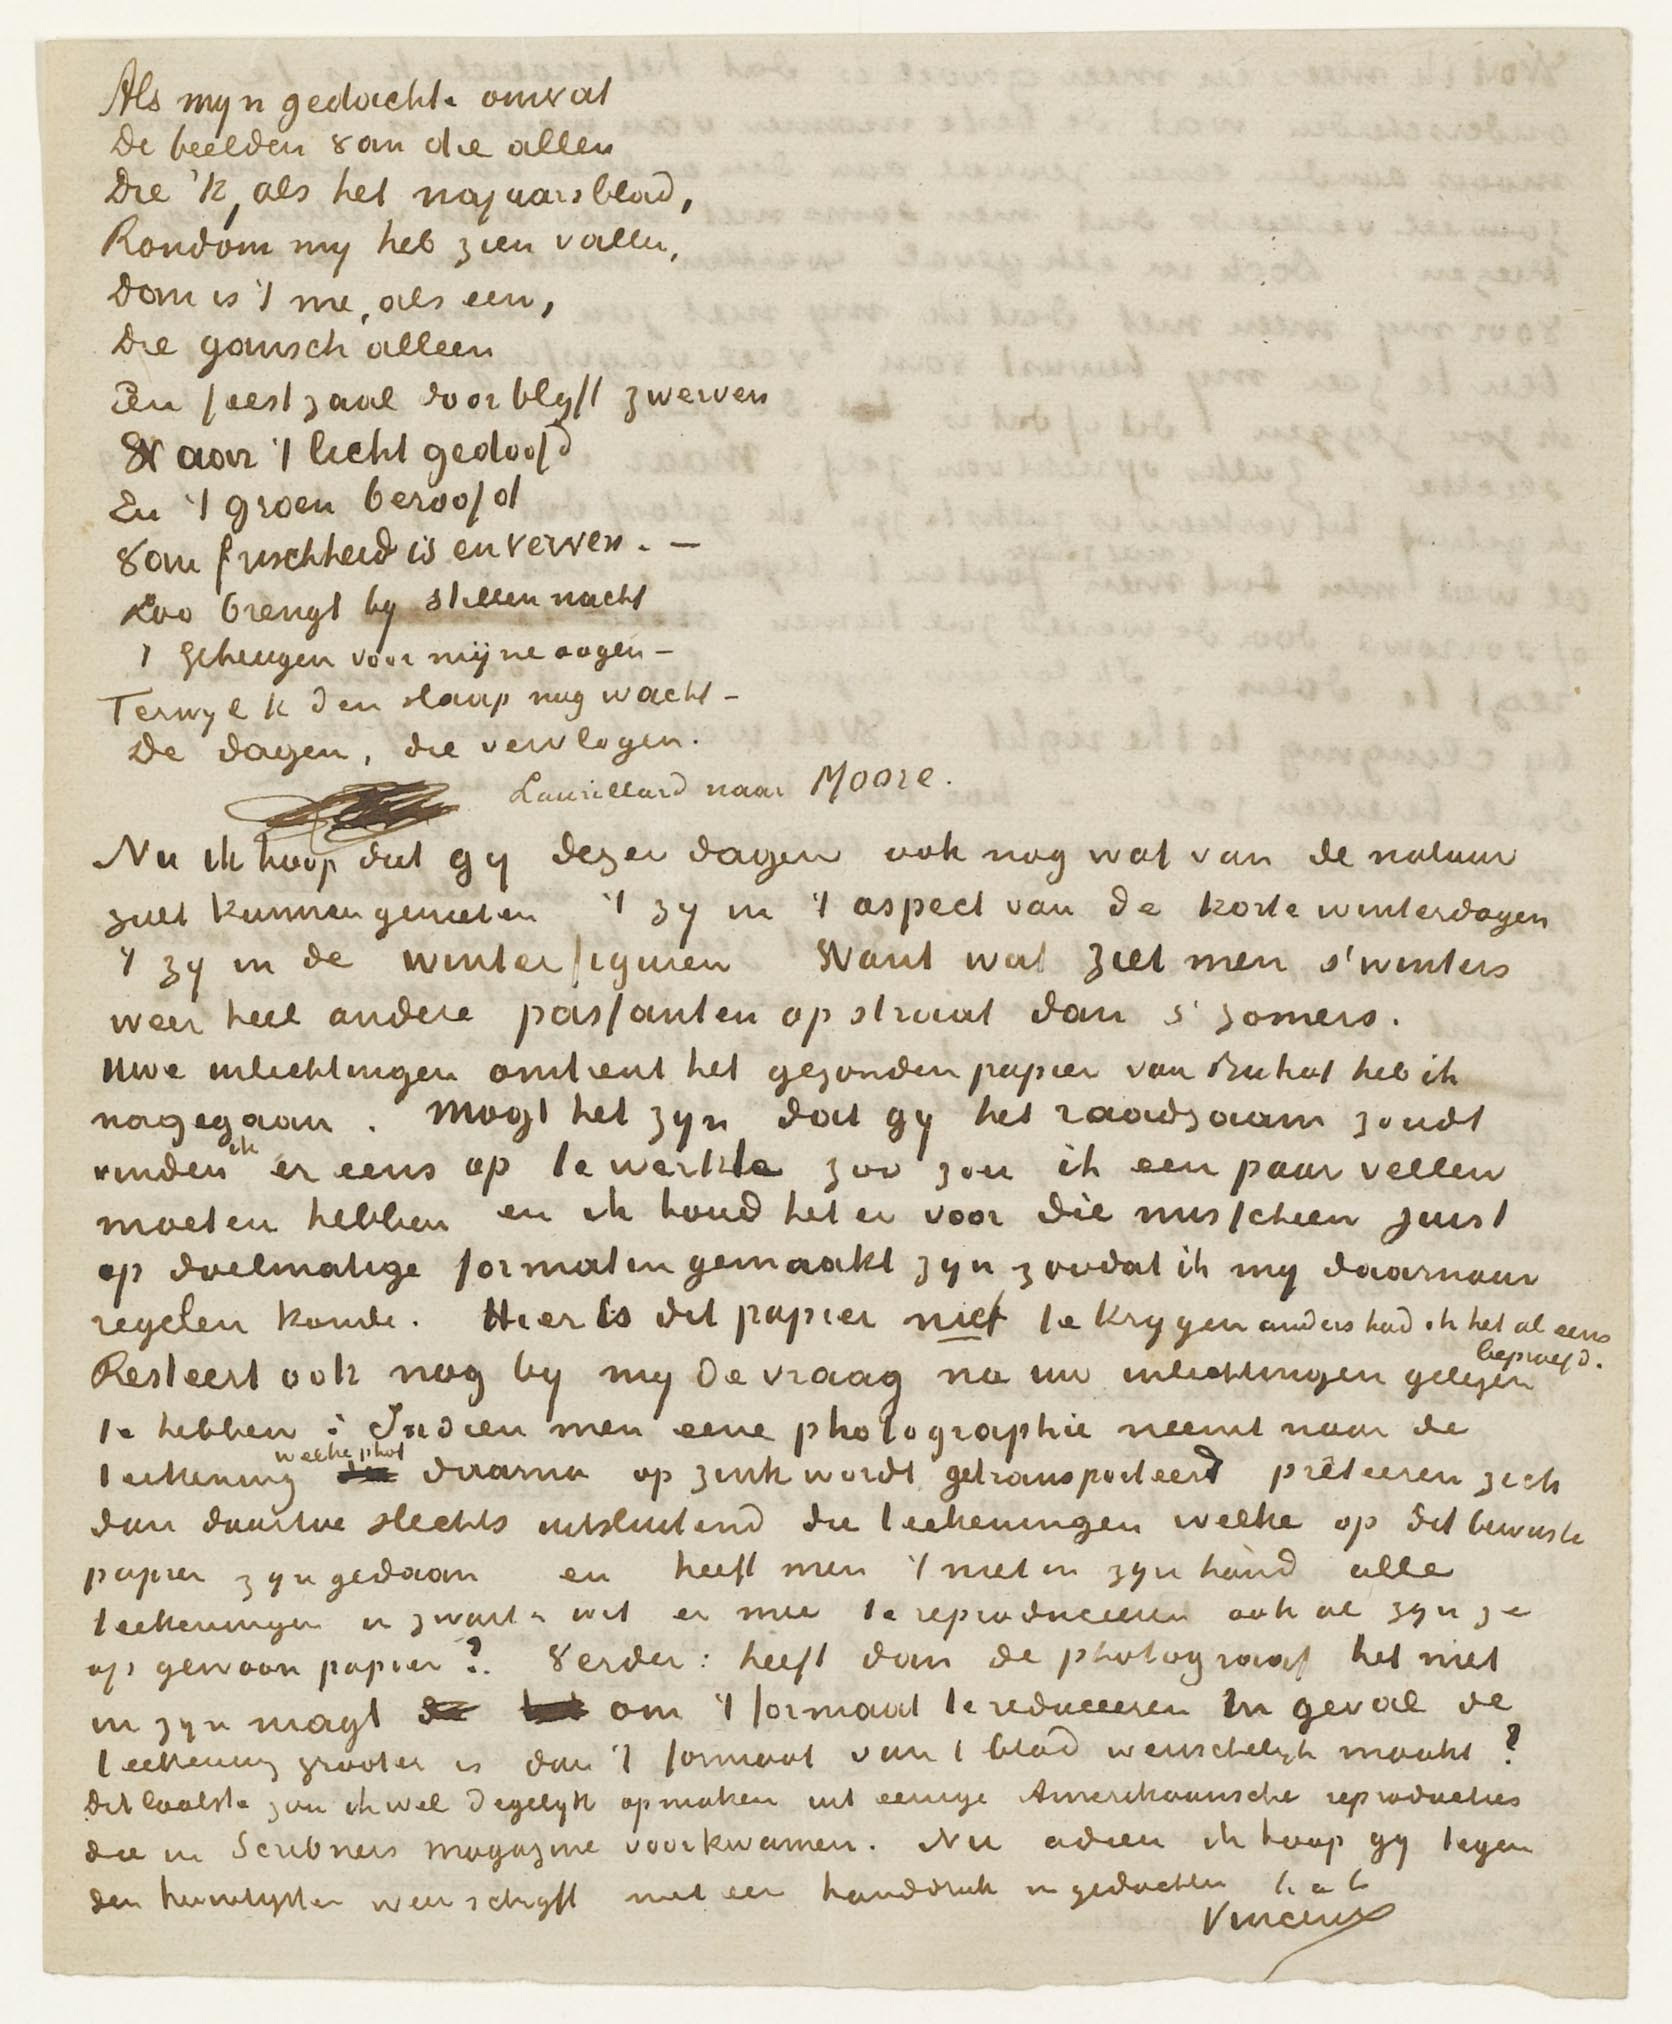 Als mijn gedachte omvat
De beelden van die allen
Die 'k, als het najaarsblad,
Rondom mij heb zien vallen,
Dan is 't me, als een,
Die gansch alleen
Een feestzaal door blijft zwerven
Waar 't licht gedoofd
En 't groen beroofd
Van frischheid is en verven. —
Zoo brengt bij stillen nacht
't geheugen voor mijne oogen —
Terwijl k den slaap nog wacht —
De dagen, die vervlogen.
Laurillard naar Moore.
Nu ik hoop dat gij dezer dagen ook nog wat van de natuur
zult kunnen genieten 't zij in 't aspect van de korte winterdagen
't zij in de winterfiguren Want wat ziet men s'winters
weer heel andere passanten op straat dan s' zomers.
Uwe inlichtingen omtrent het gezonden papier van Buhot heb ik
nagegaan. Mogt het zijn dat gij het raadzaam zoudt
vinden ik er eens op te werkte zoo zou ik een paar vellen
moeten hebben en ik houd het er voor die misschien juist
op doelmatige formaten gemaakt zijn zoodat ik mij daarnaar
regelen konde. Hier is dit papier niet te krijgen anders had ik het al eens
beproefd.
Resteert ook nog bij mij de vraag na uw inlichtingen gelezen
te hebben : Indien men eene photographie neemt naar de
teekening welke phot daarna op zink wordt getransporteerd prêteeren zich
dan daartoe slechts uitsluitend die teekeningen welke op dit bewuste
papier zijn gedaan en heeft men 't niet in zijn hand alle
teekeningen in zwart & wit er mee te reproduceeren ook al zijn ze
op gewoon papier?. Verder: heeft dan de photograaf het niet
in zijn magt om 't formaat te reduceeren In geval de
teekening grooter is dan 't formaat van t blad wenschelijk maakt?
Dit laatste zou ik wel degelijk opmaken uit eenige Amerikaansche reproducties
die in Scribners magazine voorkwamen. Nu adieu ik hoop gij tegen
den kersttijd er weer schrijft met een handdruk in gedachten t. à t.
Vincent